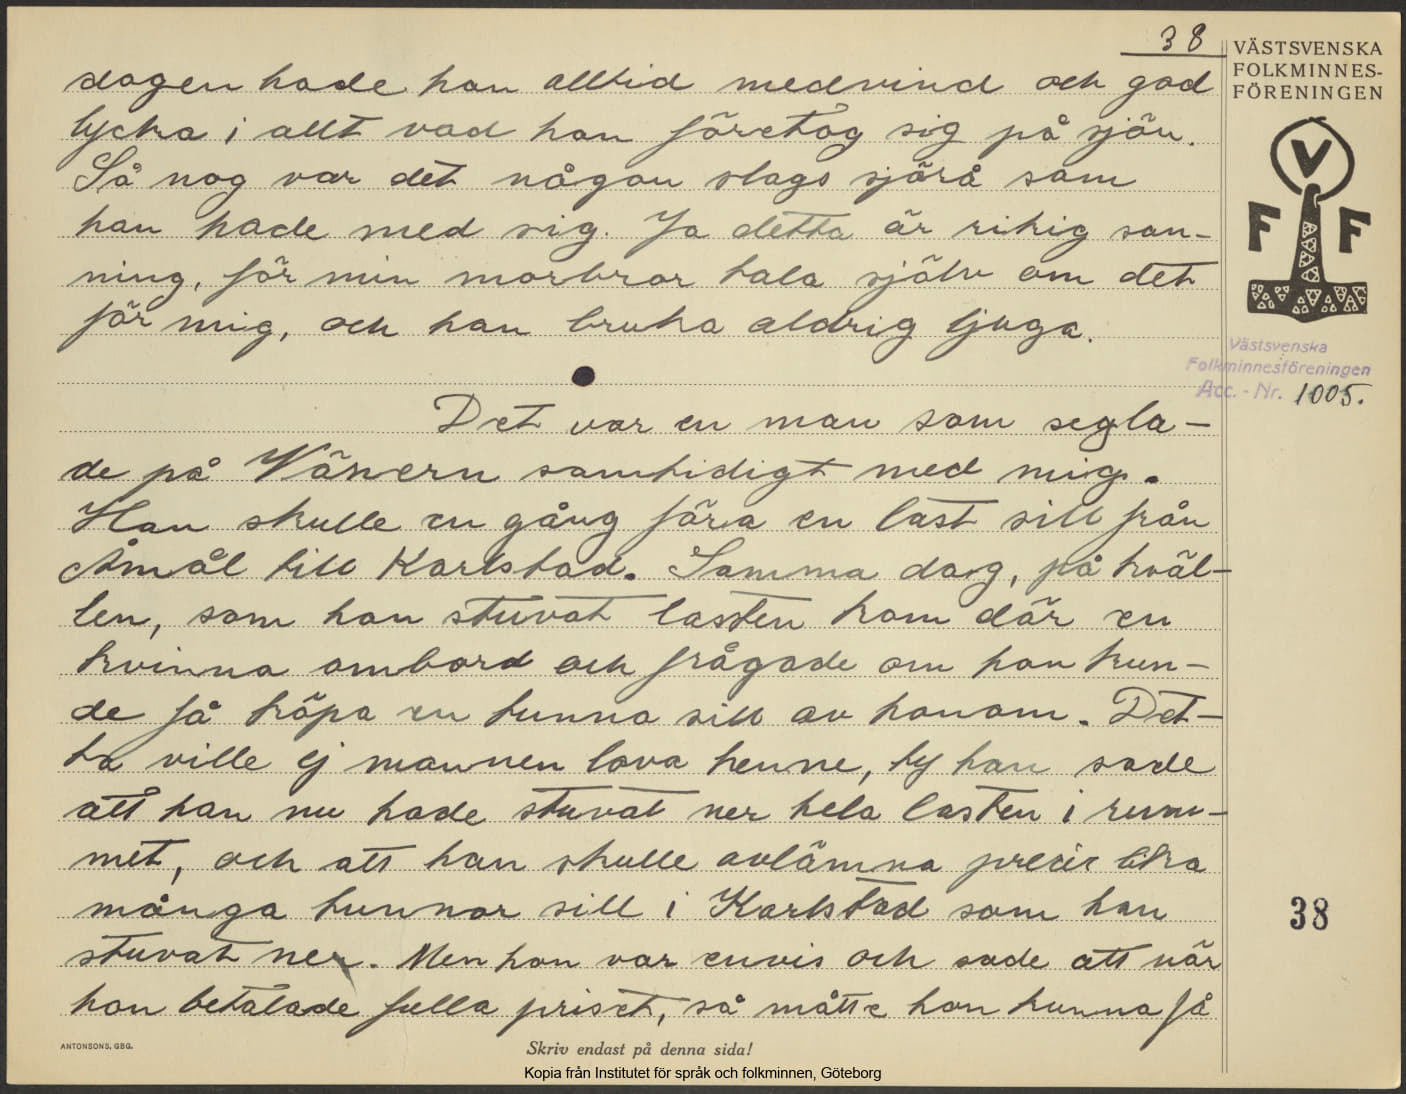 38
VÄSTSVENSKA
FOLKMINNES-
FÖRENINGEN
dagen hade han alltid medvind och god
lycka i allt vad han företog sig på sjön.
Så nog var det någon slags sjörå som
han hade med sig. Ja detta är riktig san-
ning, för min morbror tala själv om det
för mig, och han bruka aldrig ljuga.
V
F F
Västsvenska
Folkminnesföreningen
Acc. - Nr. 1005.
Det var en man som segla-
de på Vänern samtidigt med mig.
Han skulle en gång föra en last sill från
Åmål till Karlstad. Samma dag, på kväl-
len, som han stuvat lasten kom där en
kvinna ombord och frågade om hon kun-
de få köpa en tunna sill av honom. Det-
ta ville ej mannen lova henne, ty han sade
att han nu hade stuvat ner hela lasten i rum-
met, och att han skulle avlämna precis lika
många tunnor sill i Karlstad som han
stuvat ner. Men hon var envis och sade att när
hon betalade fulla priset, så måtte hon kunna få
38
ANTONSONS, GBG.
Skriv endast på denna sida!
Kopia från Institutet för språk och folkminnen, Göteborg